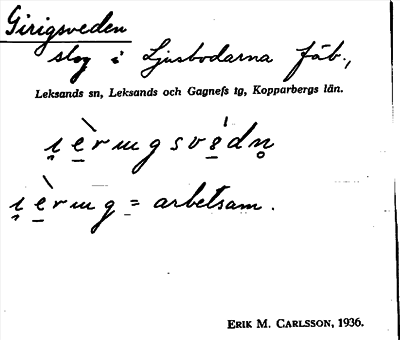 Girigsveden
skog i Ljusbodarna fäb.,
Leksands sn, Leksands och Gagnefs tg, Kopparbergs län.
= arbetsam.
ERIK M. CARLSSON, 1936.